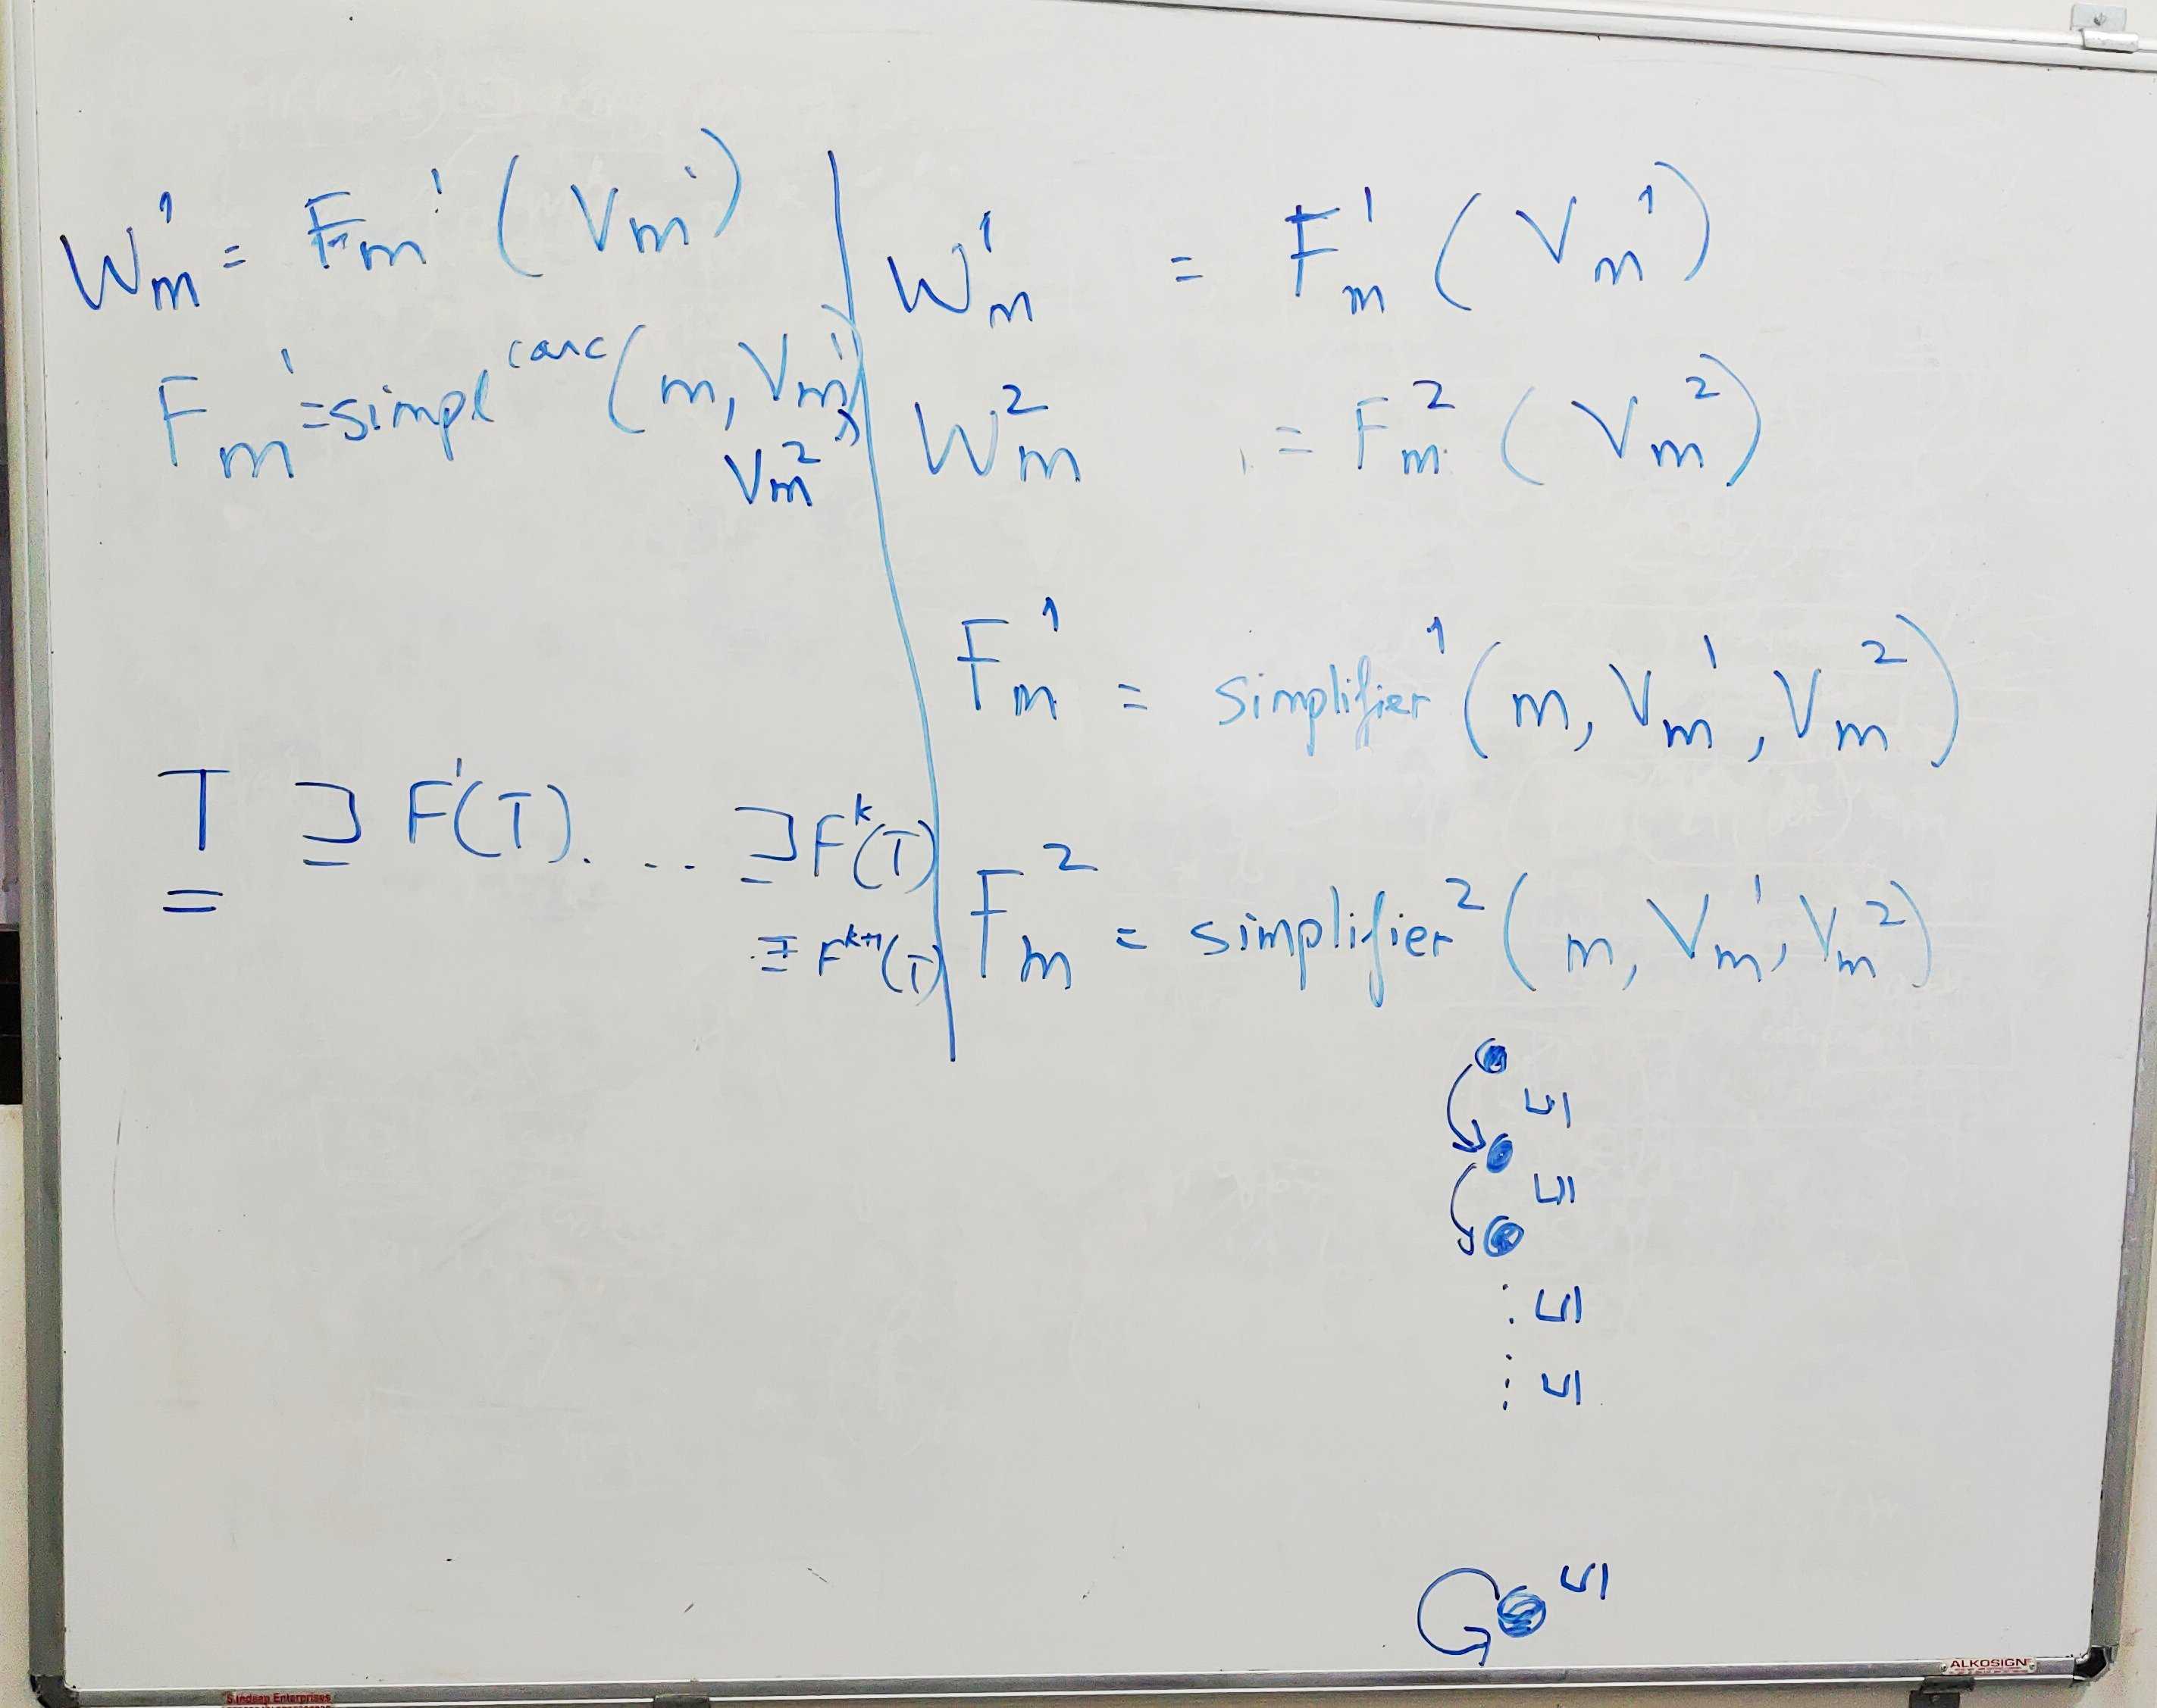 W_m^1 = F_m^1 ( V_m^1 )
F_m^1 = simpl^conc ( m, V_m^1, V_m^2 )
T ⊒ F^1(T) . . . . ⊒ F^k(T)
=
F^{k+1}(T)
W_m^1 = F_m^1 ( V_m^1 )
W_m^2 = F_m^2 ( V_m^2 )
F_m^1 = simplifier^1 ( m, V_m^1, V_m^2 )
F_m^2 = simplifier^2 ( m, V_m^1, V_m^2 )
⊔|
⊔|
: ⊔|
: ⊔|
⊔|
S.Indeep Enterprises
ALKOSIGN